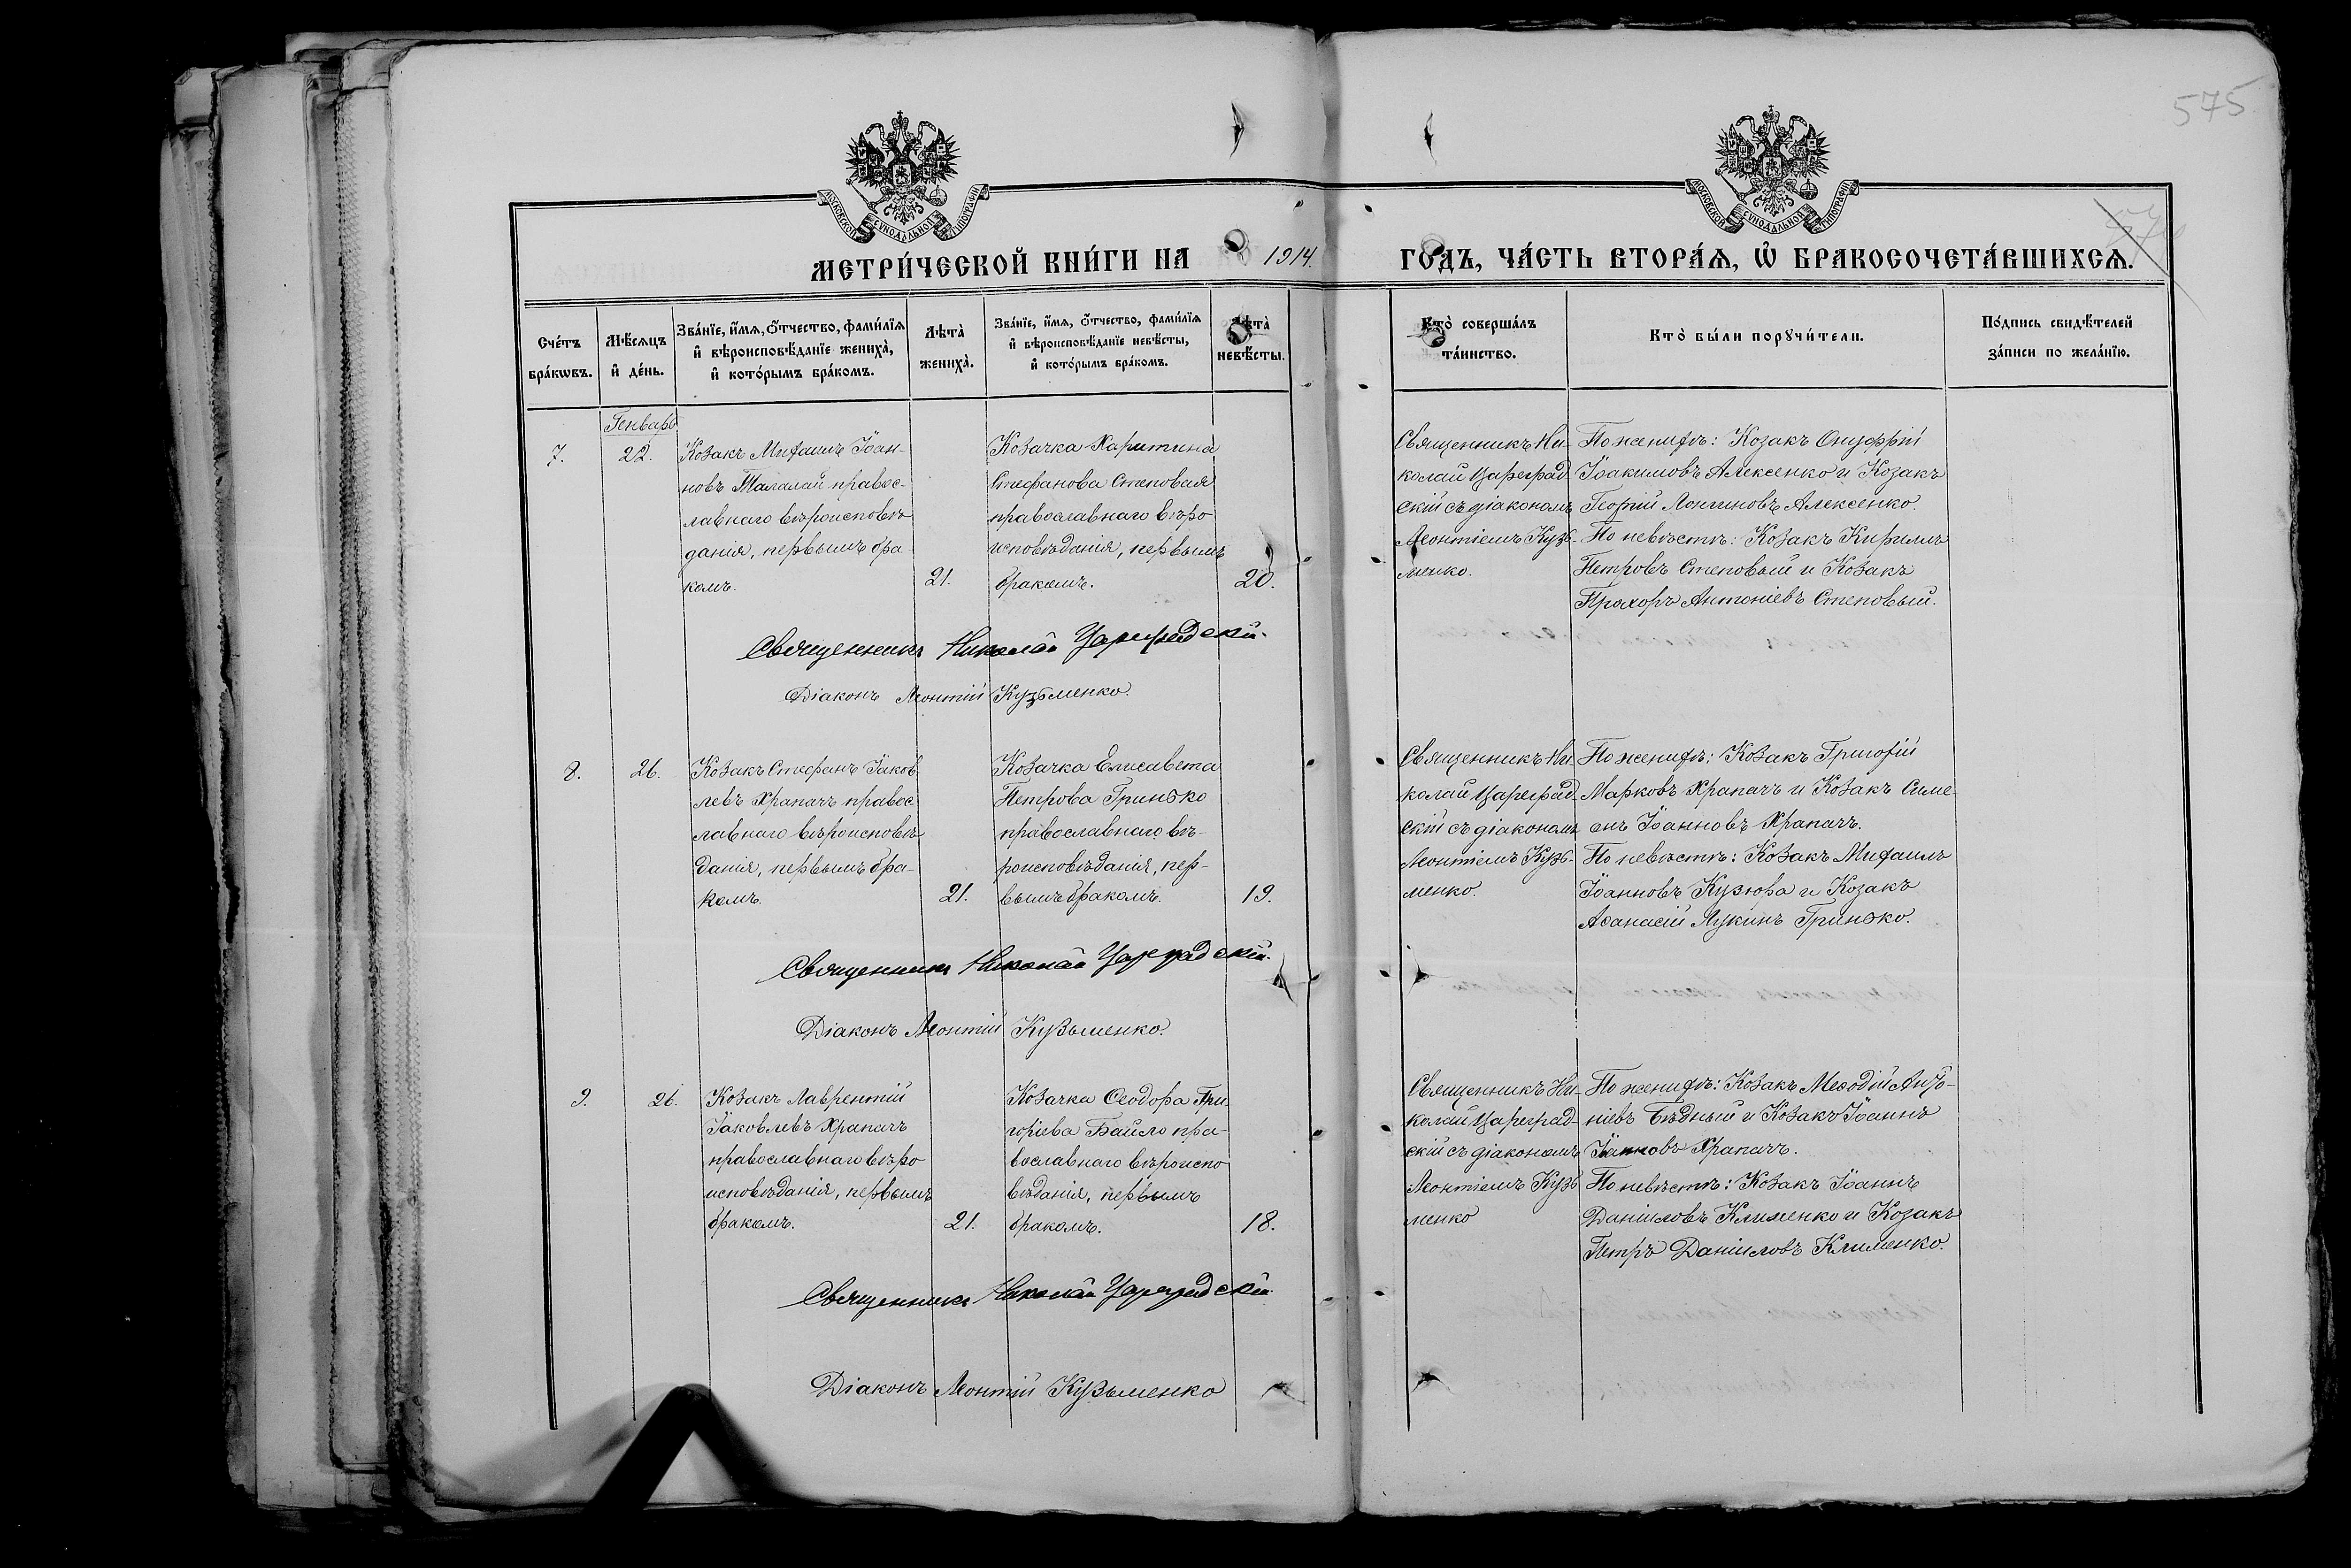 575
МОСКОВСКОЙ СѴНОДАЛЬНОЙ ТИПОГРАФІИ
МОСКОВСКОЙ СѴНОДАЛЬНОЙ ТИПОГРАФІИ
МЕТРИ́ЧЕСКОЙ КНИ́ГИ НА 1914. ГО́ДЪ, ЧА́СТЬ ВТОРА́Ѧ, Ѡ҆ БРАКОСОЧЕТА́ВШИХСѦ.
Сче́тъ
бра́кѡвъ.
Мѣ́сѧцъ
и҆ де́нь.
Зва́нїе, и҆́мѧ, ѻ҆́тчество, фами́лїѧ
и҆ вѣроисповѣ́данїе жениха̀,
и҆ кото́рымъ бра́комъ.
Лѣта̀
жениха̀.
Зва́нїе, и҆́мѧ, ѻ҆́тчество, фами́лїѧ
и҆ вѣроисповѣ́данїе невѣ́сты,
и҆ кото́рымъ бра́комъ.
Лѣта̀
невѣ́сты.
Кто̀ соверша́лъ
та́инство.
Кто̀ бы́ли порꙋчи́тели.
По́дпись свидѣ́телей
за́писи по жела́нїю.
Генварь
7.
22.
Козакъ Михаилъ Іоан-
новъ Талалай правос-
лавнаго вѣроисповѣ
данія, первымъ бра-
комъ.
21.
Козачка Харитина
Стефанова Степовая
православнаго вѣро
исповѣданія, первымъ
бракомъ.
20.
Священникъ Ни-
колай Цареград-
скій съ діакономъ
Леонтіемъ Кузь-
менко.
По женихѣ: Козакъ Онуфрій
Іоакимовъ Алексенко и Козакъ
Георгій Лонгиновъ Алексенко.
По невѣстѣ: Козакъ Кириллъ
Петровъ Степовый и Козакъ
Прохоръ Антоніевъ Степовый.
Священникъ Николай Цареградскій.
Діаконъ Леонтій Кузьменко.
8.
26.
Козакъ Стефанъ Іаков
левъ Храпачъ правос
лавнаго вѣроисповѣ
данія, первымъ бра-
комъ.
21.
Козачка Елисавета
Петрова Гринько
православнаго вѣ-
роисповѣданія, пер-
вымъ бракомъ.
19.
Священникъ Ни-
колай Цареград-
скій съ діакономъ
Леонтіемъ Кузь-
менко.
По женихѣ: Козакъ Григорій
Марковъ Храпачъ и Козакъ Симе-
онъ Іоанновъ Храпачъ.
По невѣстѣ: Козакъ Михаилъ
Іоанновъ Кузюра и Козакъ
Аѳанасій Лукинъ Гринько.
Священникъ Николай Цареградскій.
Діаконъ Леонтій Кузьменко.
9.
26.
Козакъ Лаврентій
Іаковлевъ Храпачъ
православнаго вѣро
исповѣданія, первымъ
бракомъ.
21.
Козачка Ѳеодора Гри-
горіева Байло пра-
вославнаго вѣроиспо
вѣданія, первымъ
бракомъ.
18.
Священникъ Ни-
колай Цареград-
скій съ діакономъ
Леонтіемъ Кузь
менко
По женихѣ: Козакъ Меѳодій
Бѣдный и Козакъ Іоаннъ
Іоанновъ Храпачъ.
По невѣстѣ: Козакъ Іоаннъ
Даніиловъ Клименко и Козакъ
Петръ Даніиловъ Клименко.
Священникъ Николай Цареградскій
Діаконъ Леонтій Кузьменко